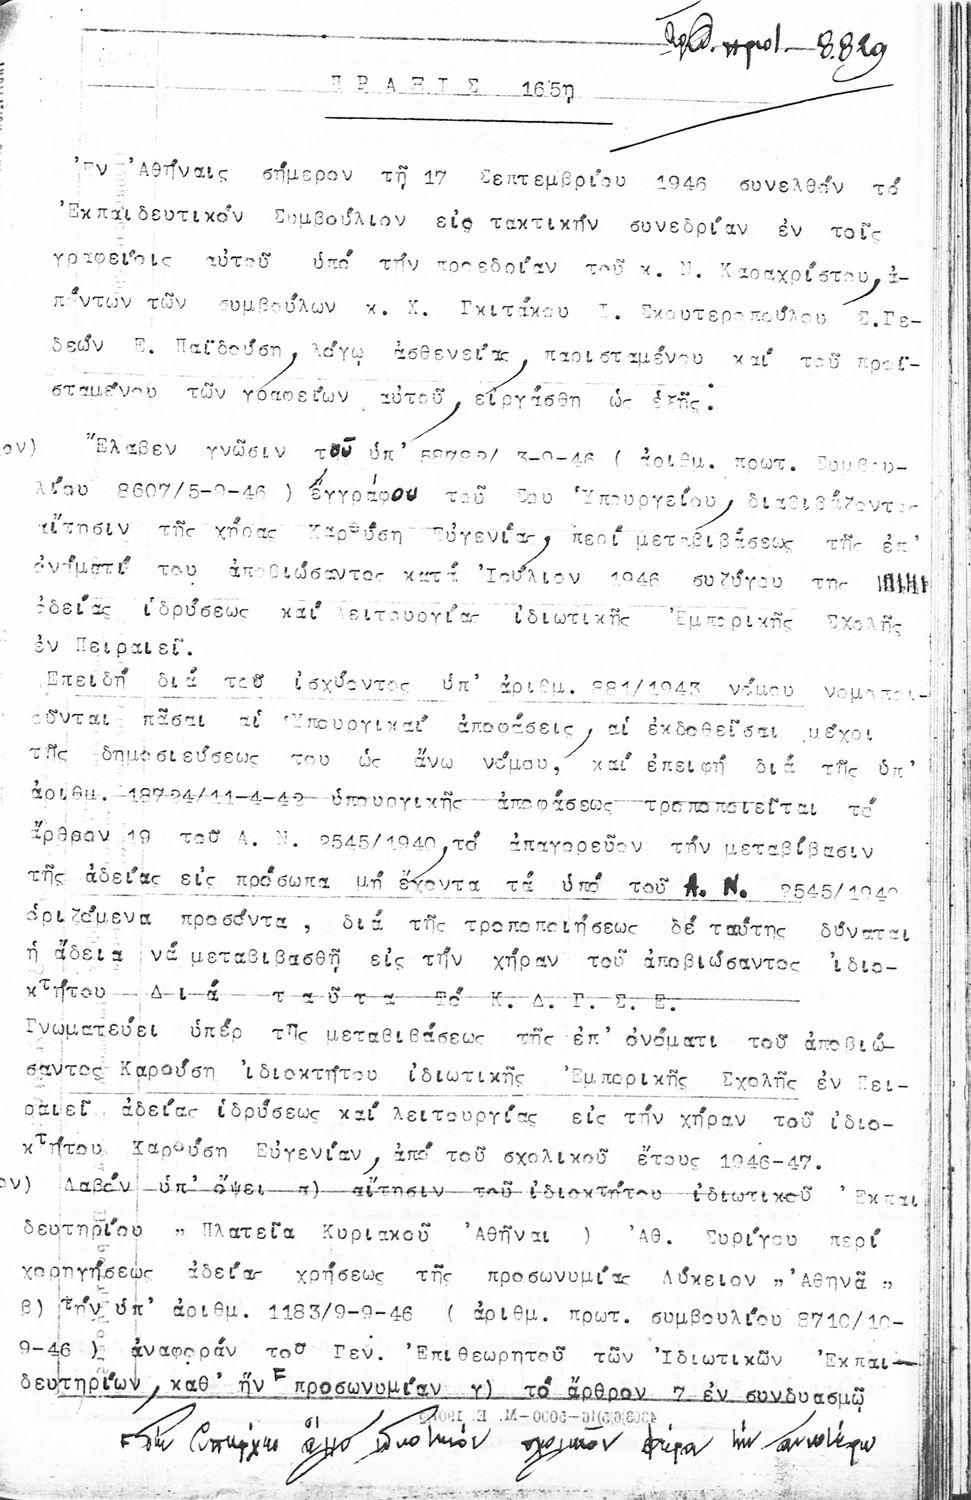 8.8.29
ΠΡΑΞΙΣ 165η
Ἐν Ἀθήναις σήμερον τῇ 17 Σεπτεμβρίου 1946 συνελθόν τό
Ἐκπαιδευτικόν Συμβούλιον εἰς τακτικήν συνεδρίαν ἐν τοῖς
γραφείοις αὐτοῦ ὑπό τήν προεδρίαν τοῦ κ. Ν. Καραχρίστου, ἀ-
πόντων τῶν συμβούλων κ. Χ. Γκιτάκου Ι. Σκουτεροπούλου Σ.Γε-
δεών Ε. Παϊδούση, λόγῳ ἀσθενείας, παρισταμένου καί τοῦ προϊ-
σταμένου τῶν γραφείων αὐτοῦ, εἰργάσθη ὡς ἑξῆς:
ον) Ἔλαβεν γνῶσιν τοῦ ὑπ' 58782/ 3-9-46 ( ἀριθμ. πρωτ. Συμβου-
λίου 8607/5-9-46 ) ἐγγράφου τοῦ Σου Ὑπουργείου, διαβιβάζοντος
αἴτησιν τῆς χήρας Καρούση Εὐγενίας, περί μεταβιβάσεως τῆς ἐπ'
ὀνόματί του ἀποβιώσαντος κατά Ἰούλιον 1946 συζύγου της
ἀδείας ἱδρύσεως καί λειτουργίας ἰδιωτικῆς Ἐμπορικῆς Σχολῆς
ἐν Πειραιεῖ.
Ἐπειδή διά τοῦ ἰσχύοντος ὑπ' ἀριθμ. 881/1943 νόμου νομοποι-
οῦνται πᾶσαι αἱ Ὑπουργικαί ἀποφάσεις, αἱ ἐκδοθεῖσαι μέχρι
τῆς δημοσιεύσεως του ὡς ἄνω νόμου, καί ἐπειφή διά τῆς ὑπ'
ἀριθμ. 18724/11-4-42 ὑπουργικῆς ἀποφάσεως τροποποιεῖται τό
ἄρθρον 19 τοῦ Α. Ν. 2545/1940, τό ἀπαγορεῦον τήν μεταβίβασιν
τῆς ἀδείας εἰς πρόσωπα μή ἔχοντα τά ὑπό τοῦ Α. Ν. 2545/1940
ὁριζόμενα προσόντα , διά τῆς τροποποιήσεως δέ ταύτης δύναται
ἡ ἄδεια νά μεταβιβασθῇ εἰς τήν χήραν τοῦ ἀποβιώσαντος ἰδιο-
κτήτου Διά ταῦτα Τό Κ. Δ. Γ. Σ. Ε.
Γνωματεύει ὑπέρ τῆς μεταβιβάσεως τῆς ἐπ' ὀνόματι τοῦ ἀποβιώ-
σαντος Καρούση ἰδιοκτήτου ἰδιωτικῆς Ἐμπορικῆς Σχολῆς ἐν Πει-
ραιεῖ ἀδείας ἱδρύσεως καί λειτουργίας εἰς τήν χήραν τοῦ ἰδιο-
κτήτου Καρούση Εὐγενίαν, ἀπό τοῦ σχολικοῦ ἔτους 1946-47.
ον) Λαβόν ὑπ' ὄψει α) αἴτησιν τοῦ ἰδιοκτήτου ἰδιωτικοῦ Ἐκπαι
δευτηρίου „ Πλατεῖα Κυριακοῦ Ἀθῆναι ) Ἀθ. Συρίγου περί
χορηγήσεως ἀδείας χρήσεως τῆς προσωνυμίας Λύκειον „ Ἀθηνᾶ „
β) τήν ὑπ' ἀριθμ. 1183/9-9-46 ( ἀριθμ. πρωτ. συμβουλίου 8710/10-
9-46 ) ἀναφοράν τοῦ Γεν. Ἐπιθεωρητοῦ τῶν Ἰδιωτικῶν Ἐκπαι-
δευτηρίων, καθ' ἥν προσωνυμίαν γ) τό ἄρθρον 7 ἐν συνδυασμῷ
δέν ὑπάρχει ἄλλο ἰδιωτικόν σχολεῖον φέρον τήν ἀνωτέρω